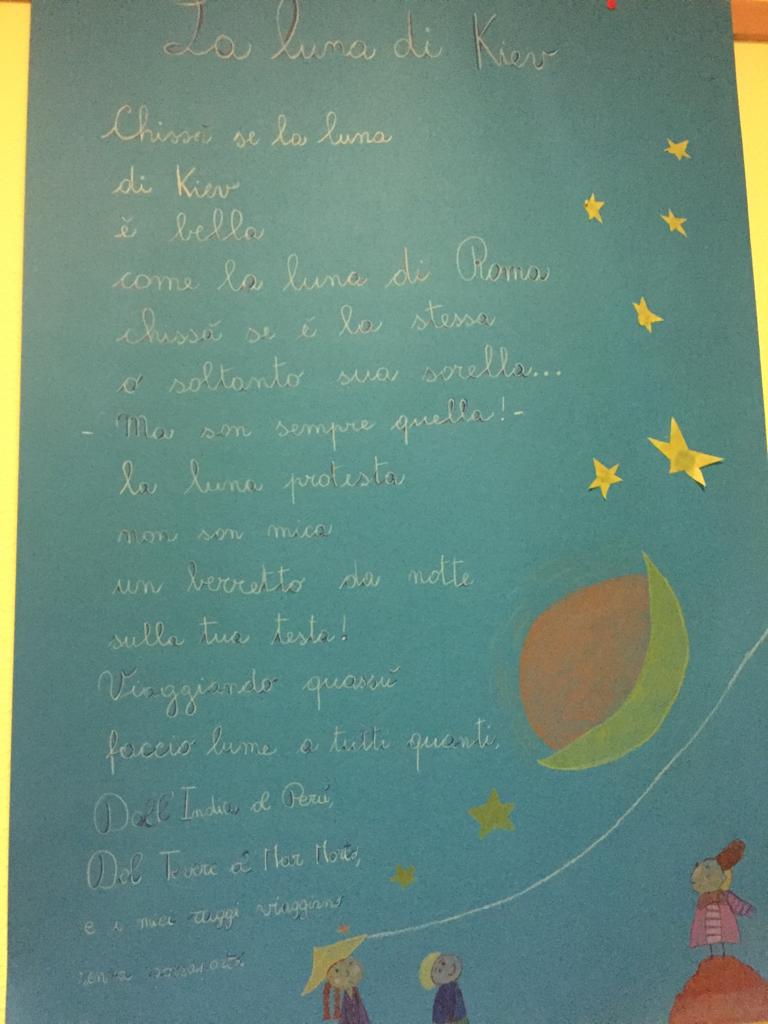 La luna di Kiev
Chissà se la luna
di Kiev
è bella
come la luna di Roma
chissà se è la stessa
o soltanto sua sorella...
- Ma son sempre quella! -
la luna protesta
non son mica
un berretto da notte
sulla tua testa!
Viaggiando quassù
faccio lume a tutti quanti,
Dall'India al Perù,
Dal Tevere al Mar Morto,
e i miei raggi viaggiano
senza passaporto.